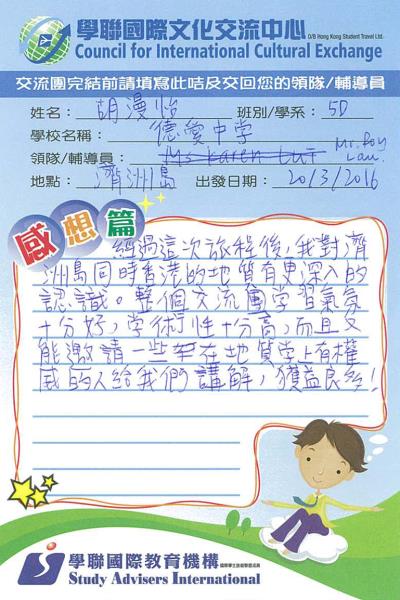 學聯國際文化交流中心 O/B Hong Kong Student Travel Ltd.
Council for International Cultural Exchange
交流團完結前請填寫此咭及交回您的領隊/輔導員
姓名：胡漫怡 班別/學系：5D
學校名稱：德愛中学
領隊/輔導員：Ms Karen Lui Mr. Roy Lau.
地點：濟洲島 出發日期：20/3/2016
感想篇
經過這次旅程後，我對濟
洲島同時香港的地質有更深入的
認識。整個交流團学習氣氛
十分好，学術性十分高，而且又
能邀請一些在地質学上有權
威的人給我們講解，獲益良多！
學聯國際教育機構
Study Advisers International